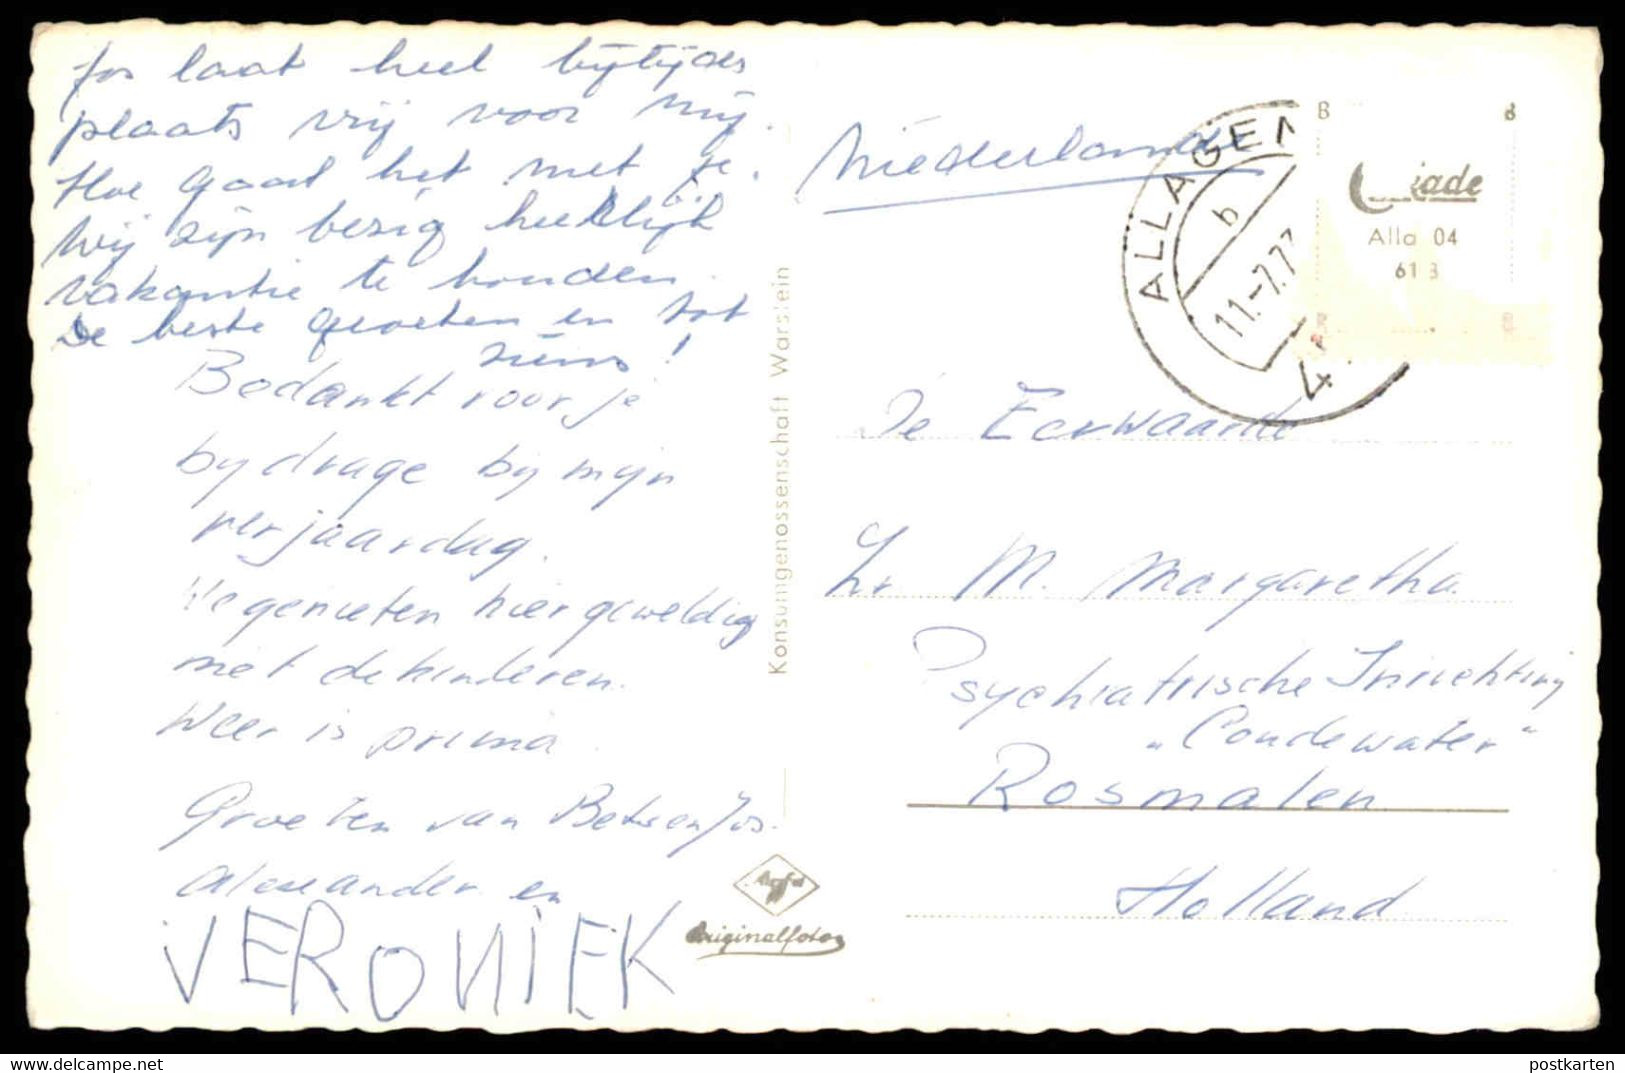 Jos laat heel bijtijds
plaats vrij voor mij.
Hoe gaat het met je.
Wij zijn bezig heerlijk
vakantie te houden.
De beste groeten en tot
ziens!
Bedankt voor je
bydrage bij mijn
verjaardag.
We genieten hier geweldig
met de kinderen.
Weer is prima.
Groeten van Betsen/Jos.
Alexander en
VERONIEK
Konsumgenossenschaft Warstein
Agfa
Originalfoto
Niederlande
ALLAGEN
b
11.-7.7
4
B
Alla 04
61 3
De Eerwaarde
Zr M. Margaretha.
Psychiatrische Inrichting
"Coudewater"
Rosmalen
Holland
postkarten